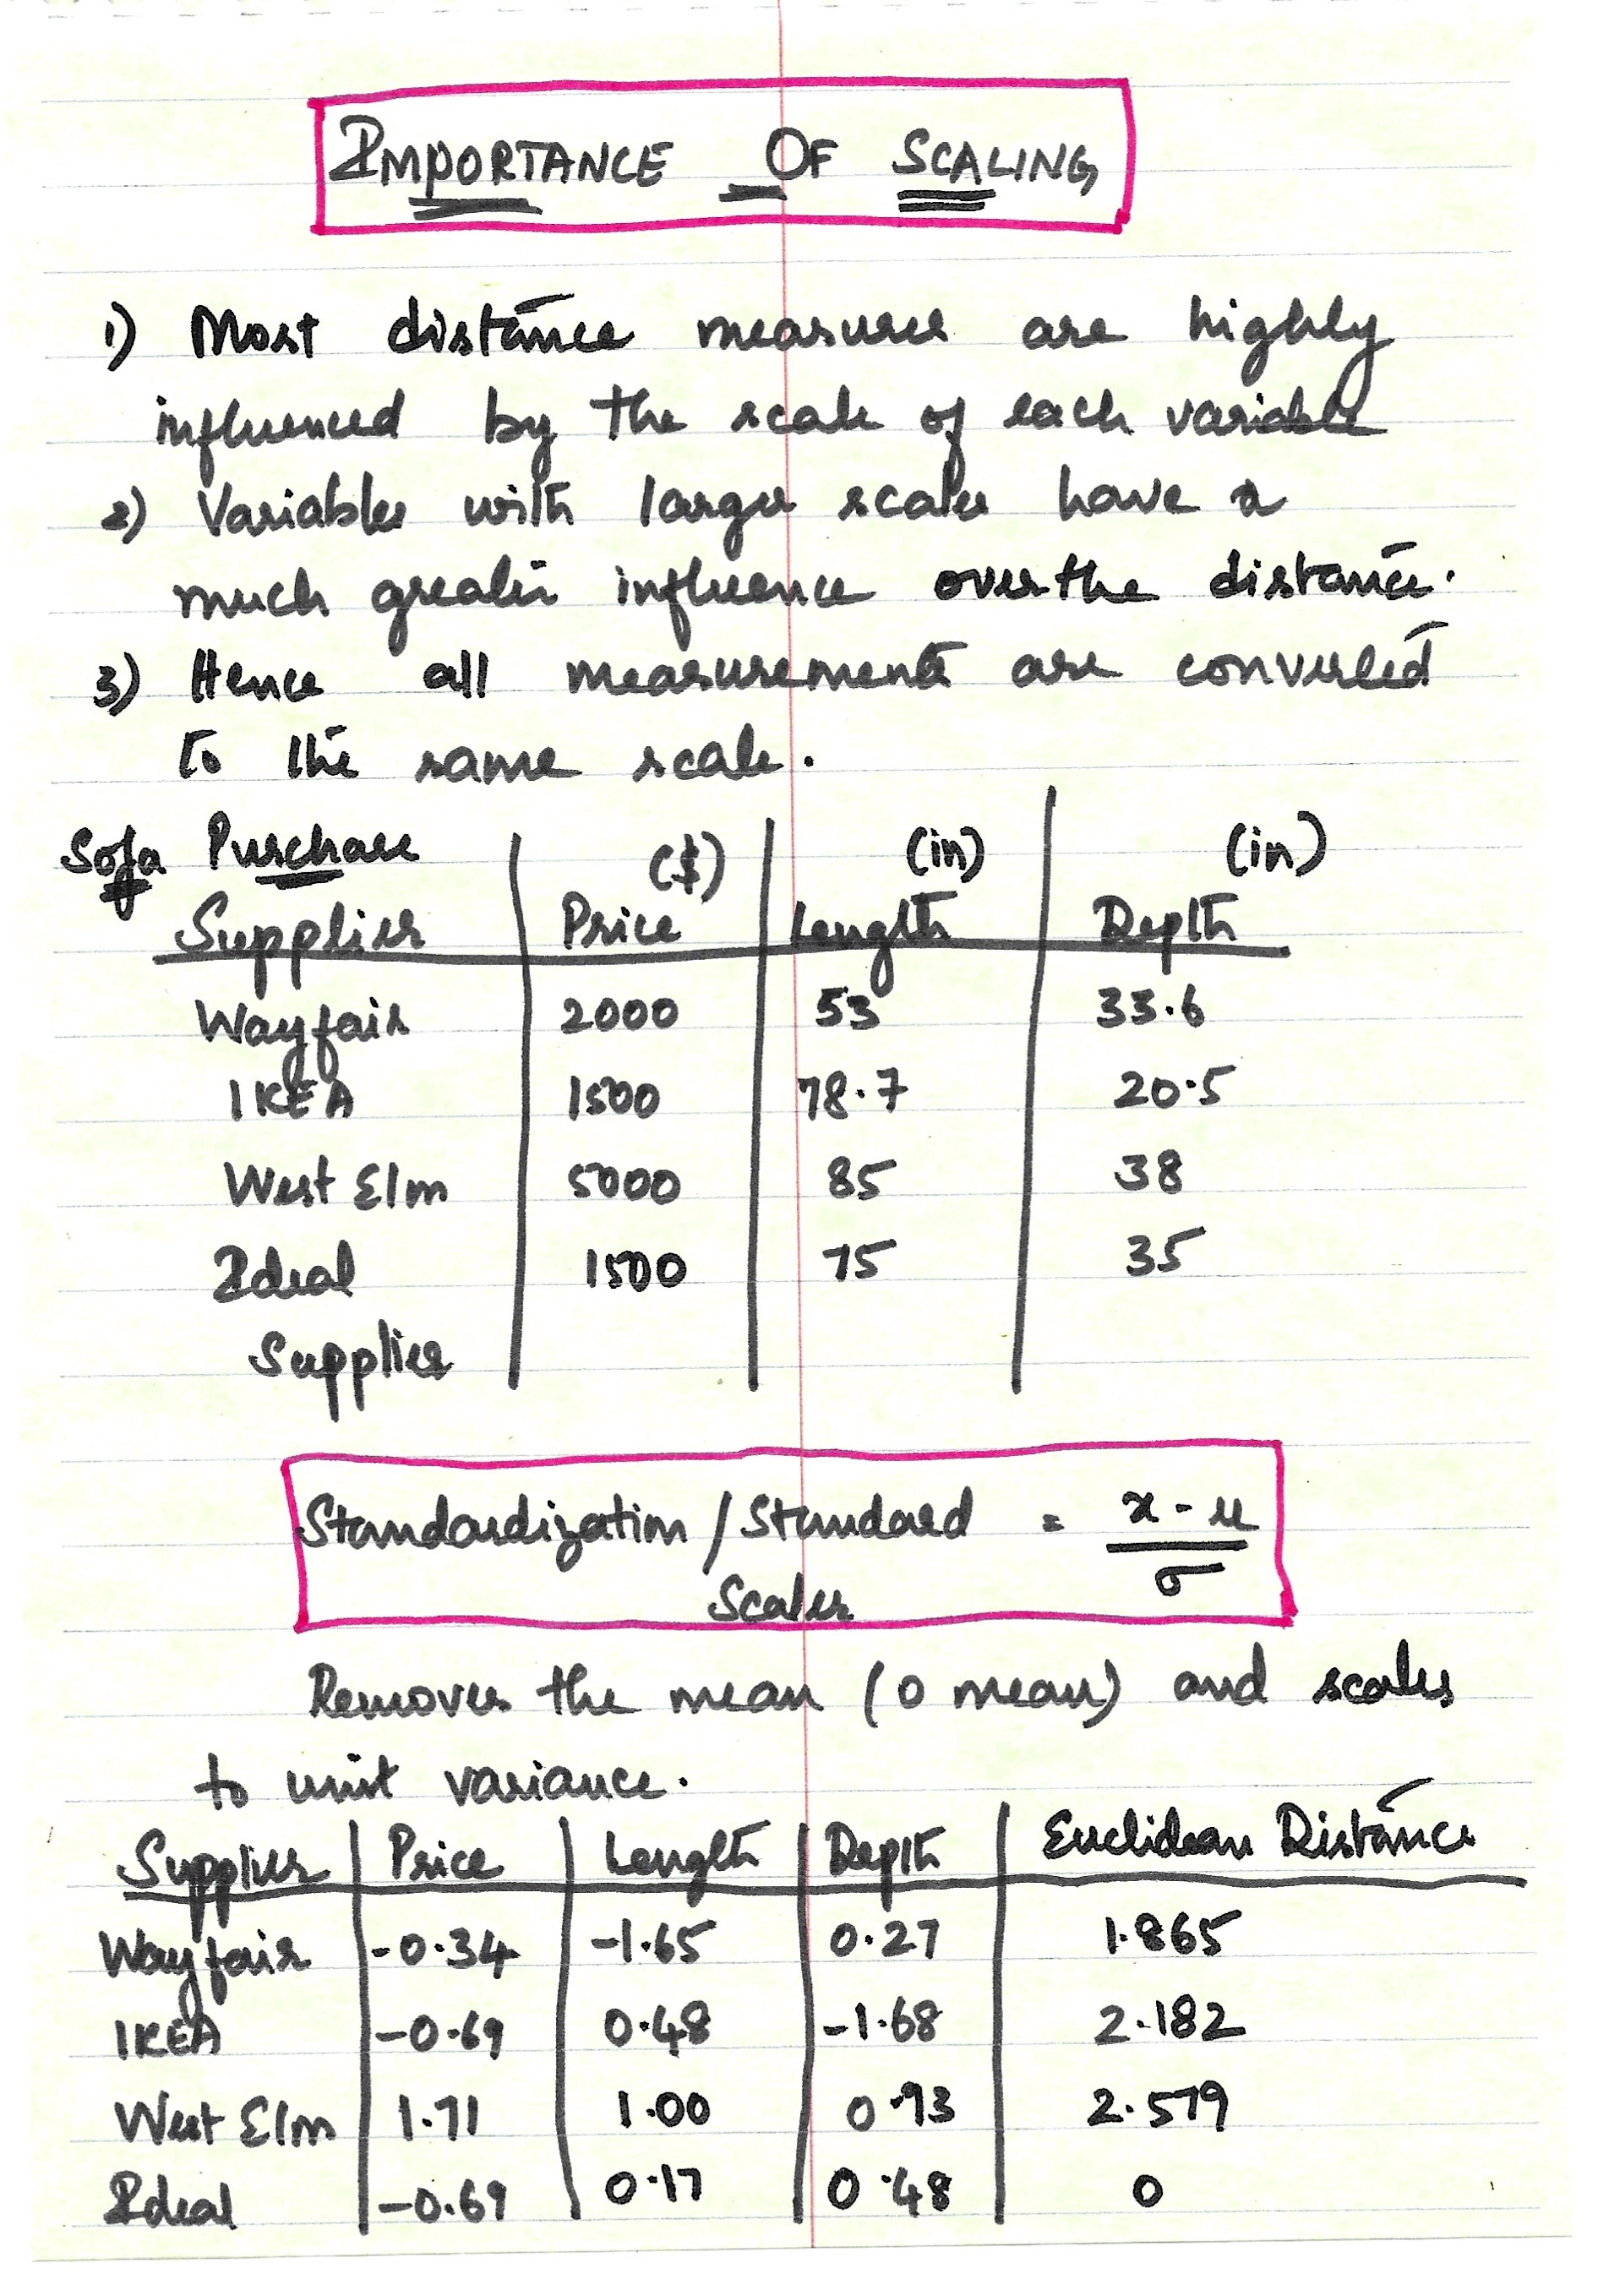 IMPORTANCE OF SCALING
1) Most distance measures are highly
influenced by the scale of each variable
2) Variables with larger scales have a
much greater influence over the distance.
3) Hence all measurements are converted
to the same scale.
Sofa Purchase ($) (in) (in)
Supplier Price Length Depth
Wayfair 2000 53 33.6
IKEA 1500 78.7 20.5
West Elm 5000 85 38
Ideal 1500 75 35
Supplier
Standardization / Standard = x - μ
Scaler σ
Removes the mean (0 mean) and scales
to unit variance.
Supplier Price Length Depth Euclidean Distance
Wayfair -0.34 -1.65 0.27 1.865
IKEA -0.69 0.48 -1.68 2.182
West Elm 1.71 1.00 0.93 2.579
Ideal -0.69 0.17 0.48 0